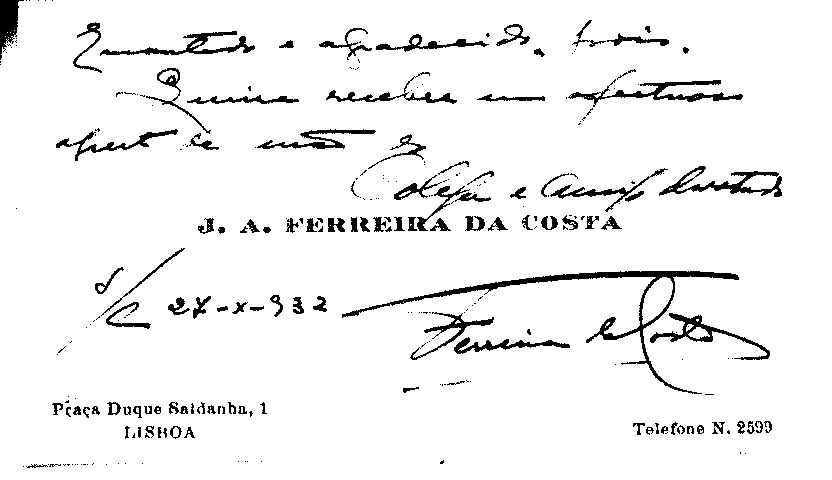 Encantado e agradecido, pois.
Queira receber um afectuoso
apert de mão do
Colega e Amigo
J. A. FERREIRA DA COSTA
S/C 27-X-932
Ferreira da Costa
Praça Duque Saldanha, 1
LISBOA
Telefone N. 2599